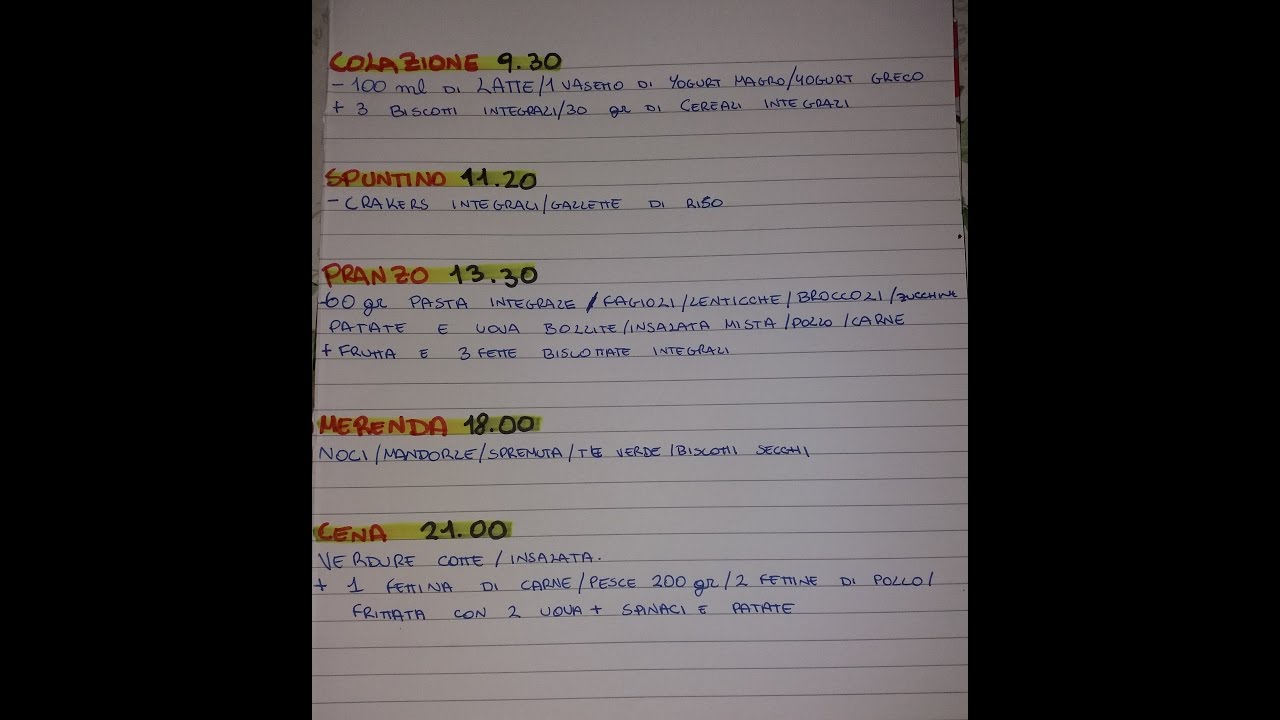 COLAZIONE 9.30
- 100 ml DI LATTE/1 VASETTO DI YOGURT MAGRO/YOGURT GRECO
+ 3 BISCOTTI INTEGRALI/30 gr DI CEREALI INTEGRALI
SPUNTINO 11.20
- CRAKERS INTEGRALI/GALLETTE DI RISO
PRANZO 13.30
-60 gr PASTA INTEGRALE /FAGIOLI/LENTICCHE/BROCCOLI/ZUCCHINE
PATATE E UOVA BOLLITE/INSALATA MISTA/POLLO/CARNE
+ FRUTTA E 3 FETTE BISCOTTATE INTEGRALI
MERENDA 18.00
NOCI/MANDORLE/SPREMUTA/TÈ VERDE/BISCOTTI SECCHI
CENA 21.00
VERDURE COTTE/INSALATA.
+ 1 FETTINA DI CARNE/PESCE 200 gr/2 FETTINE DI POLLO/
FRITTATA CON 2 UOVA + SPINACI E PATATE